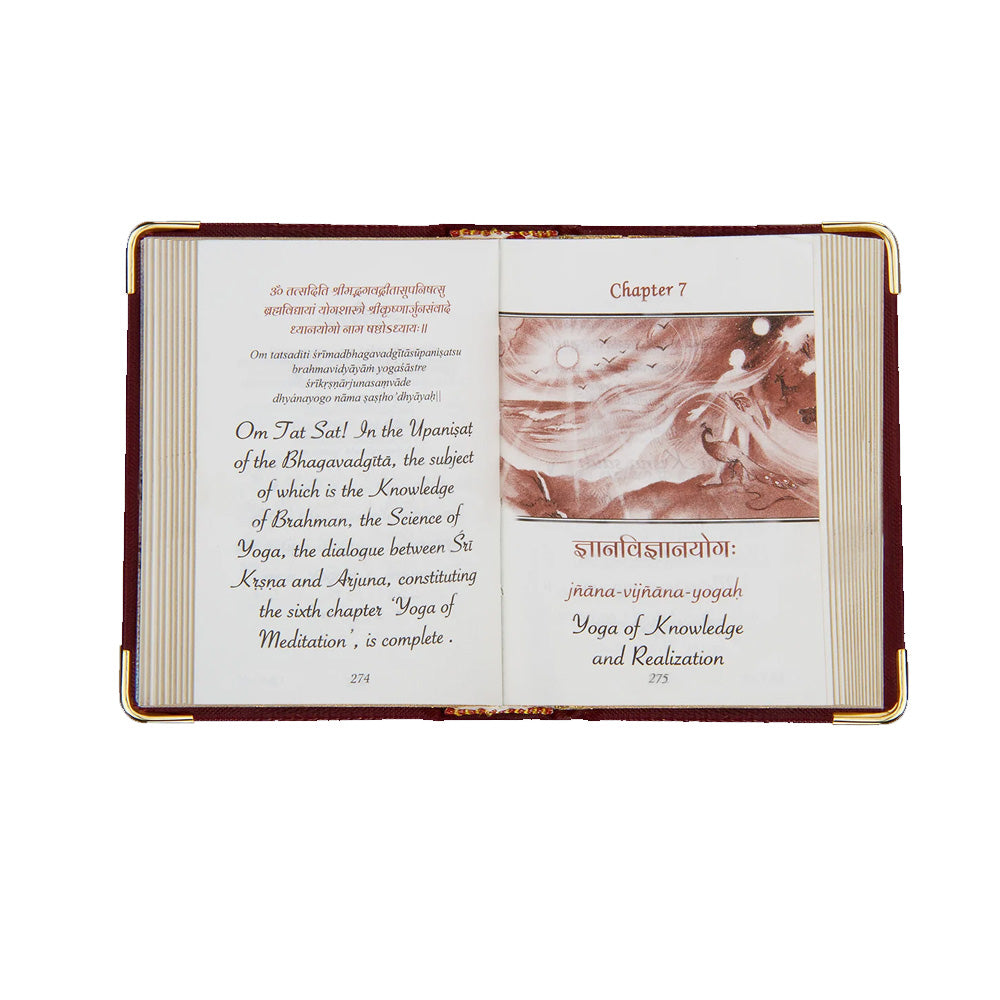 ॐ तत्सदिति श्रीमद्भगवद्गीतासूपनिषत्सु
ब्रह्मविद्यायां योगशास्त्रे श्रीकृष्णार्जुनसंवादे
ध्यानयोगो नाम षष्ठोऽध्यायः॥
Om tatsaditi śrīmadbhagavadgītāsūpaniṣatsu
brahmavidyāyāṁ yogaśāstre
śrīkṛṣṇārjunasaṁvāde
dhyánayogo nāma ṣaṣṭho’dhyāyaḥ||
Om Tat Sat! In the Upaniṣat
of the Bhagavadgītā, the subject
of which is the Knowledge
of Brahman, the Science of
Yoga, the dialogue between Śrī
Kṛṣṇa and Arjuna, constituting
the sixth chapter ‘Yoga of
Meditation’, is complete .
274
Chapter 7
ज्ञानविज्ञानयोगः
jñāna-vijñāna-yogaḥ
Yoga of Knowledge
and Realization
275